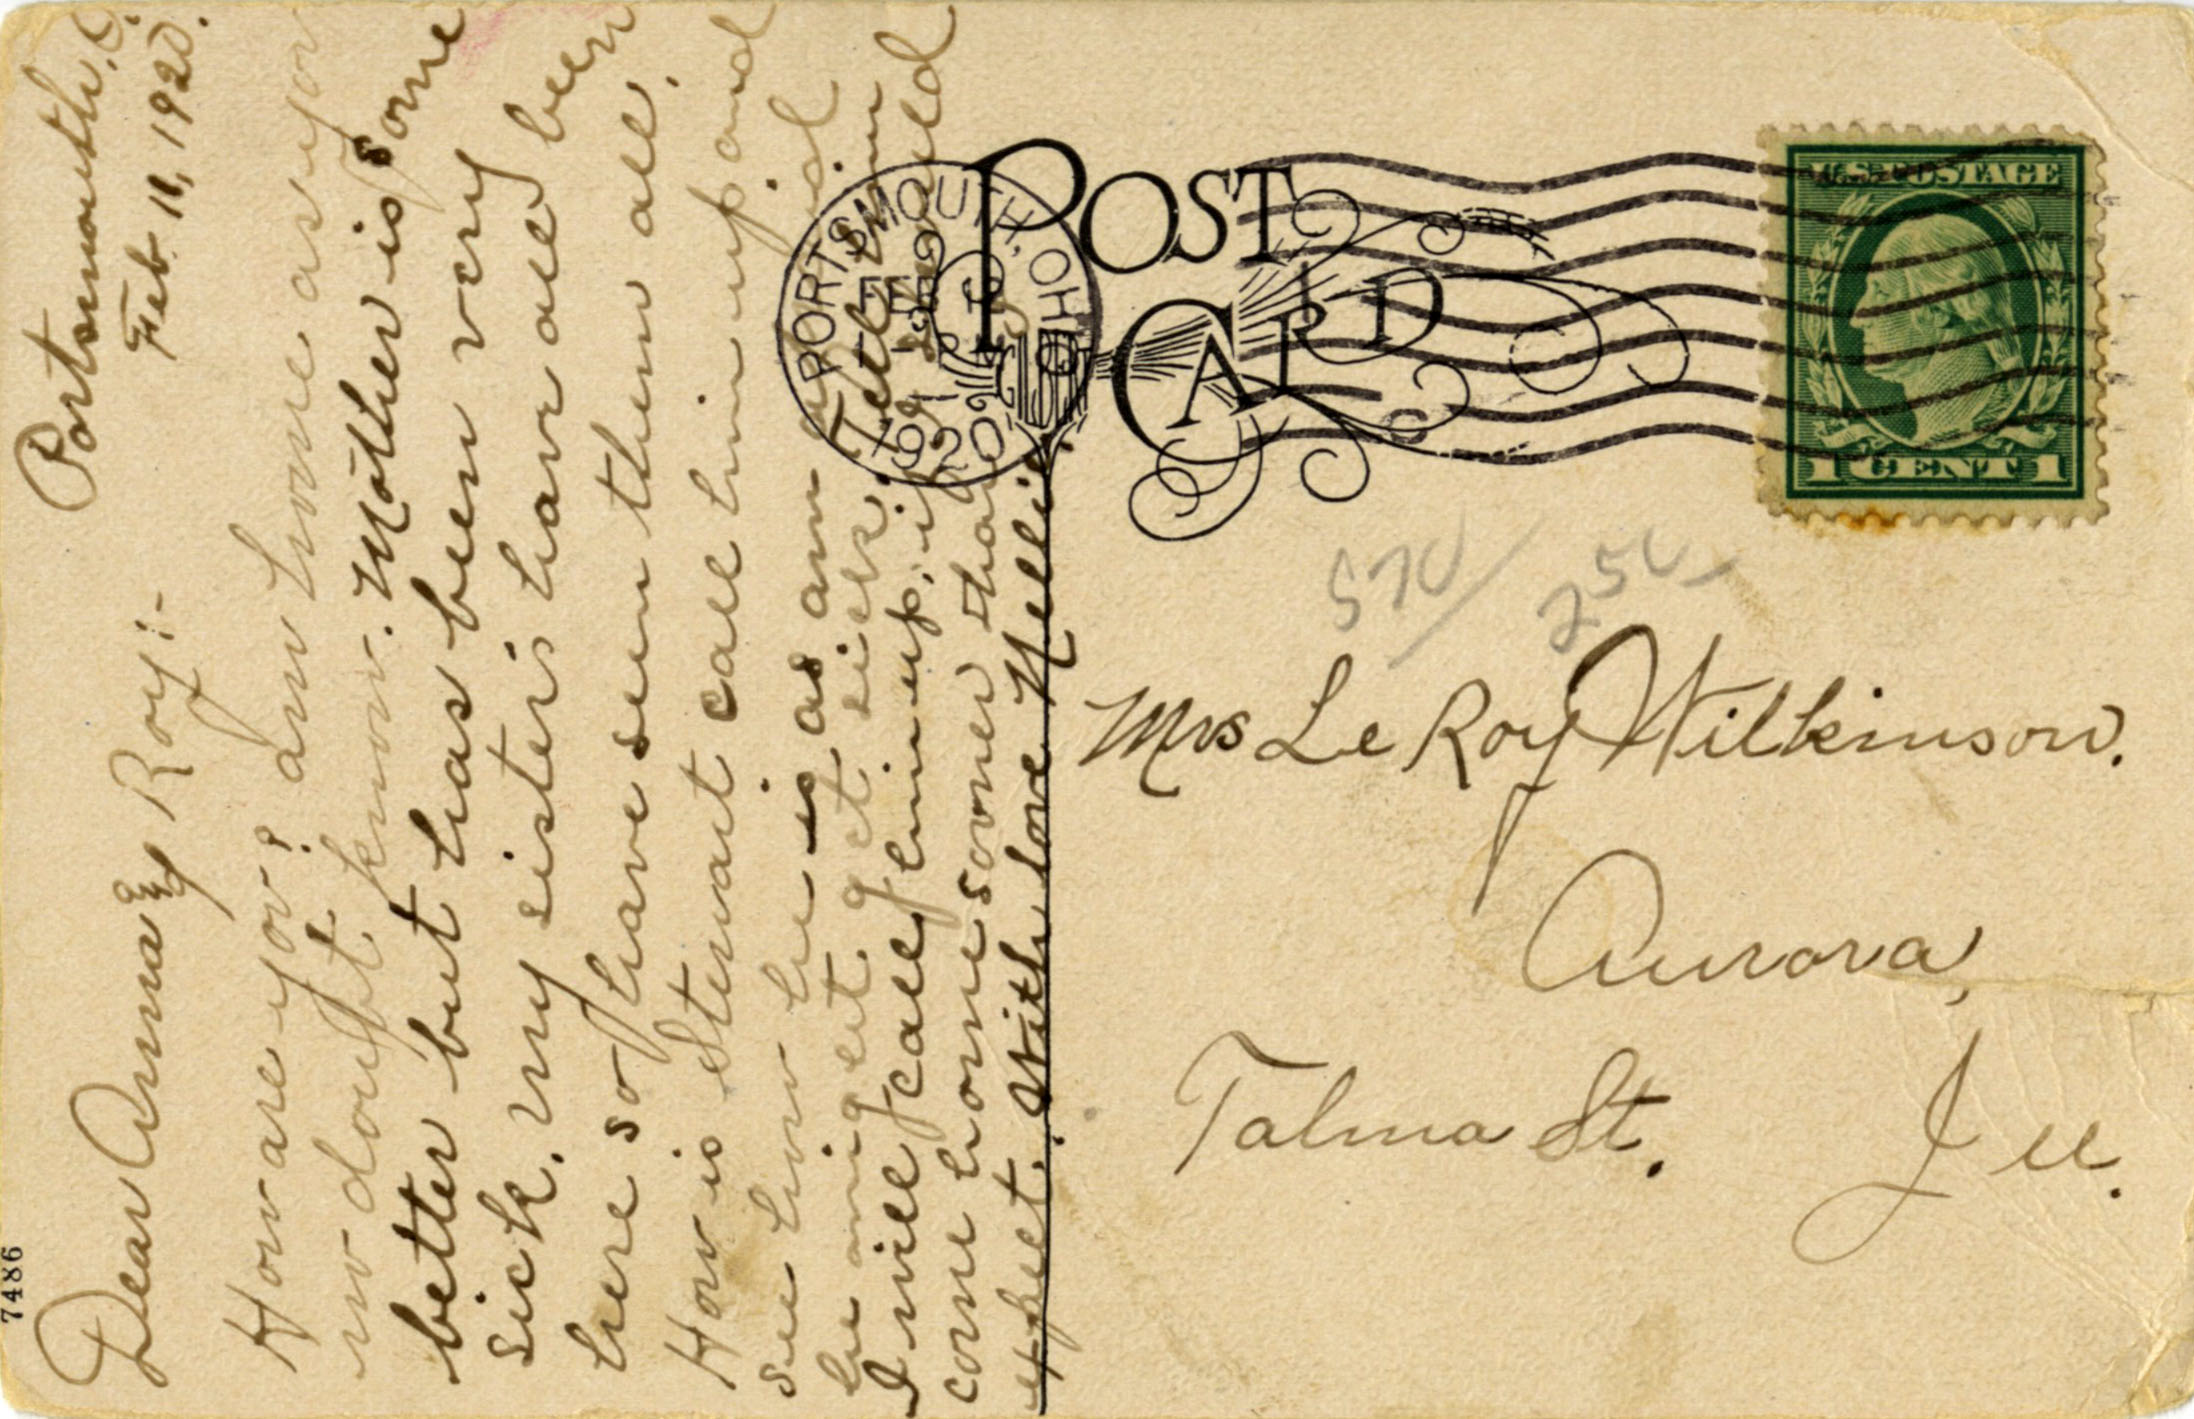 Portsmouth, O.
Feb. 11, 1920.
Dear Anna & Roy:-
How are you? am home as you
no doubt know. Mother is some
better but has been very
sick. my sister's have all been
here so have seen them all.
How is Stewart call him up and
see how he is as am afraid
he might get sick. Tell him
I will call him up, if I should
come home sooner than I
expect. With love Nellie.
7486
POST CARD
PORTSMOUTH, OHIO
FEB
1920
U.S. POSTAGE
1 CENT 1
570/
250
Mrs Le Roy Wilkinson.
Aurora,
Talma St. Ill.